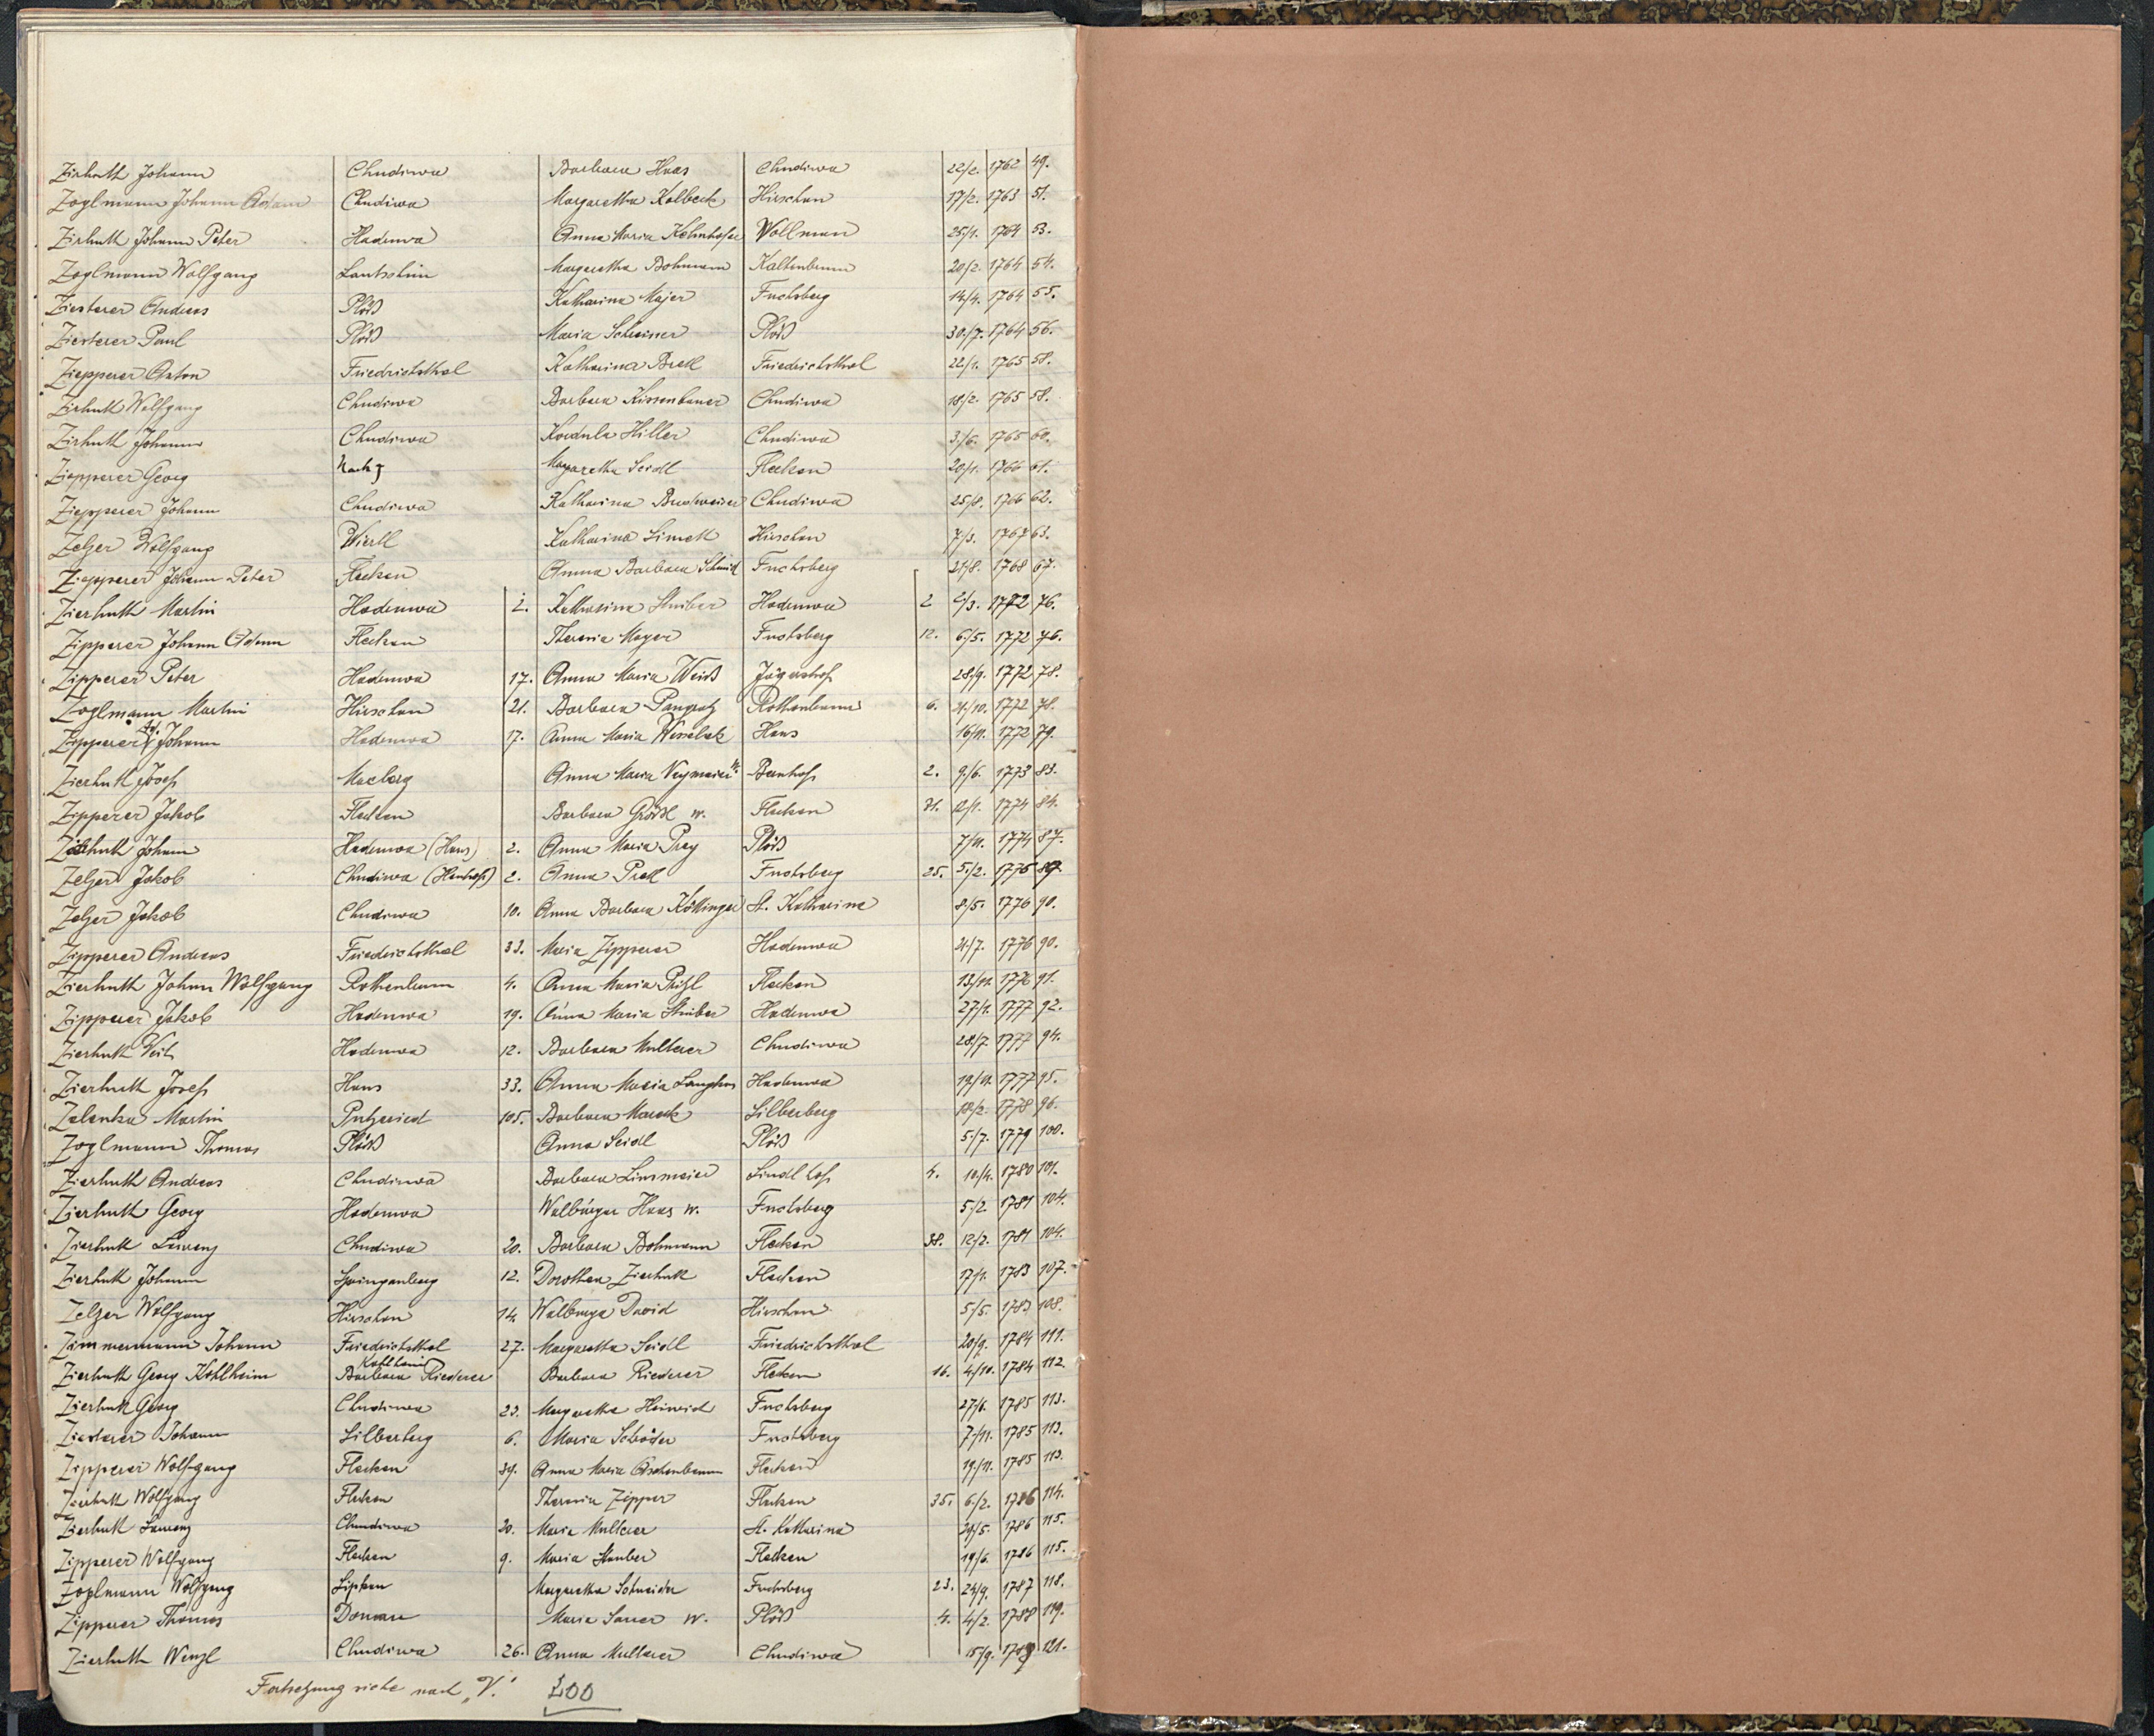 Zirhuth Johann Chudiwa Barbara Haas Chudiwa 22/2. 1762 49.
Zoglmann Johann Adam Chudiwa Margaretha Kolbeck Hirschau 17/2. 1763 51.
Zirhuth Johann Peter Hadruwa Anna Maria Vollmau 25/1. 1764 53.
Zoglmann Wolfgang Lautschim Margaretha Bohmann Kaltenbrunn 20/2. 1764 54.
Ziesterer Andreas Plöß Katharina Majer Fuchsberg 14/4. 1764 55.
Ziesterer Paul Plöß Maria Plöß 30./7. 1764 56.
Ziepperer Anton Friedrichsthal Katharina Friedrichsthal 22/1. 1765 58.
Zirhuth Wolfgang Chudiwa Barbara Chudiwa 18./2. 1765 58.
Zirhuth Johann Chudiwa Kordula Hiller Chudiwa 3/6. 1765 60.
Ziepperer Georg Margaretha Seidl Flecken 20/1. 1766 61.
Ziepperer Johann Chudiwa Katharina Budweiser Chudiwa 25/8. 1766 62.
Zelzer Wolfgang Katharina Simek Hirschau 7/3. 1767 63.
Ziepperer Johann Peter Flecken Anna Barbara Schmid Fuchsberg 21/8. 1768 67.
Zierhuth Martin Hadruwa 2. Katharina Stuiber Hadruwa 2 2/3. 1772 76.
Zipperer Johann Adam Flecken Theresia Mayer Fuchsberg 12. 6/5. 1772 76.
Zipperer Peter Hadruwa 17. Anna Maria Weiß Jägershof 28./9. 1772 78.
Zoglmann Martin Hirschau 21. Barbara Pangratz Rothenbaum 6. 4/10. 1772 78.
Zipperer Ad. Johann Hadruwa 17. Anna Maria Wesselak Haus 16/11. 1772 79.
Zierhuth Josef Anna Maria w. 2. 9./6. 1773 83.
Zipperer Jakob Flecken Barbara w. Flecken 31. 12/1. 1774 84.
Zierhuth Johann Hadruwa (Haus) 2. Anna Maria Prey Plöß 7/11. 1774 87.
Zelzer Jakob Chudiwa 2. Anna Fuchsberg 25. 5./2. 1776 89
Zelzer Jakob Chudiwa 10. Anna Barbara Költinger St. Katharina 8/5. 1776 90.
Zipperer Andreas Friedrichsthal 33. Maria Zipperer Hadruwa 4/7. 1776 90.
Zierhuth Johann Wolfgang Rothenbaum 4. Anna Maria Flecken 13/11. 1776 91.
Zipperer Jakob Hadruwa 19. Anna Maria Stuiber Hadruwa 27/1. 1777 92.
Zierhuth Veit Hadruwa 12. Barbara Multerer Chudiwa 28/7. 1777 94.
Zierhuth Josef Haus 33. Anna Maria Hadruwa 19/11. 1777 95.
Zelenka Martin Putzeried 105. Barbara Marek Silberberg 18/2. 1778 96.
Zoglmann Thomas Plöß Anna Seidl Plöß 5./7. 1779 100.
Zierhuth Andreas Chudiwa Barbara Linsmeier 4. 10./4. 1780 101.
Zierhuth Georg Hadruwa Walburga Haas w. Fuchsberg 5./2 1781 104.
Zierhuth Lorenz Chudiwa 20. Barbara Bohmann Flecken 38. 12/2. 1781 104.
Zierhuth Johann Springenberg 12. Dorothea Zierhuth Flecken 17/1. 1783 107.
Zelzer Wolfgang Hirschau 14. Walburga David Hirschau 5/5. 1783 108.
Zimmermann Johann Friedrichsthal 27. Margaretha Seidl Friedrichsthal 20/9. 1784 111.
Kohlheim
Zierhuth Georg Kohlheim Barbara Riederer Barbara Riederer Flecken 16. 4/10. 1784 112.
Zierhuth Georg Chudiwa 23. Margaretha Fuchsberg 27/6. 1785 113.
Ziesterer Johann Silberberg 6. Maria Schöder Fuchsberg 7./11. 1785 113.
Zipperer Wolfgang Flecken 39. Anna Maria Aschenbrenn Flecken 19/11. 1785 113.
Zierhuth Wolfgang Flecken Theresia Zipper Flecken 35. 6./2. 1786 114.
Zierhuth Lorenz Chudiwa 20. Maria Multerer St. Katharina 29/5. 1786 115.
Zipperer Wolfgang Flecken 9. Maria Stauber Flecken 19/6. 1786 115.
Zoglmann Wolfgang Margaretha Schneider Fuchsberg 23. 24/9. 1787 118.
Zipperer Thomas Donau Maria Sauer w. Plöß 4. 4/2. 1788 119.
Zierhuth Wenzl Chudiwa 26. Anna Multerer Chudiwa 15/9. 1789 121.
Fortsetzung siehe nach „V."